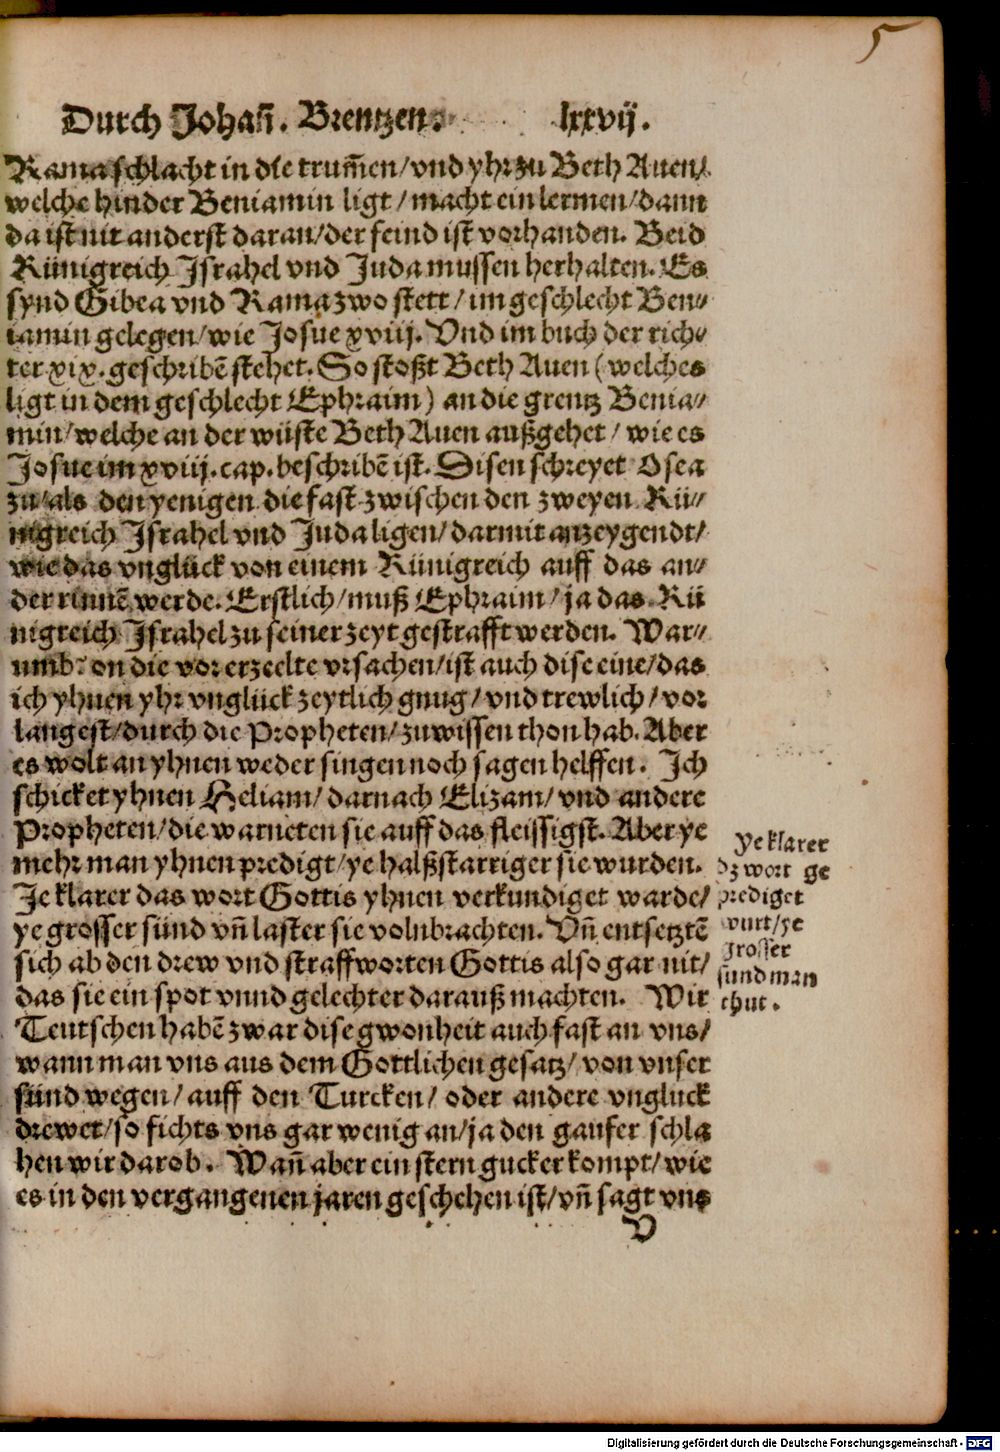 5
Durch Johañ. Brentzen. lxxvij.
Rama schlacht in die trum̃en/vnd yhr zu Beth Auen/
welche hinder Beniamin ligt/macht ein lermen/dann
da ist nit anderst daran/der feind ist vorhanden. Beid
Künigreich Israhel vnd Juda mussen herhalten. Es
synd Gibea vnd Rama zwo stett/im geschlecht Ben⸗
iamin gelegen/wie Josue xviij. Vnd im buch der rich⸗
ter xix. geschribẽ stehet. So stoßt Beth Auen (welches
ligt in dem geschlecht Ephraim) an die grentz Benia⸗
min/welche an der wüste Beth Auen außgehet/wie es
Josue im xviij. cap. beschribẽ ist. Disen schreyet Osea
zu/als den yenigen die fast zwischen den zweyen Kü⸗
nigreich Israhel vnd Juda ligen/darmit anzeygendt/
wie das vnglück von einem Künigreich auff das an⸗
der rinnẽ werde. Erstlich/muß Ephraim/ja das Kü
nigreich Israhel zu seiner zeyt gestrafft werden. War⸗
umb? on die vor erzeelte vrsachen/ist auch dise eine/das
ich yhnen yhr vnglück zeytlich gnug/vnd trewlich/vor
langest/durch die Propheten/zuwissen thon hab. Aber
es wolt an yhnen weder singen noch sagen helffen. Ich
schicket yhnen Heliam/darnach Elizam/vnd andere
Propheten/die warneten sie auff das fleissigst. Aber ye
mehr man yhnen predigt/ye halßstarriger sie wurden.
Je klarer das wort Gottis yhnen verkundiget warde/
ye grosser sünd vñ laster sie volnbrachten. Vñ entsetztẽ
sich ab den drew vnd straffworten Gottis also gar nit/
das sie ein spot vnnd gelechter darauß machten. Wir
Teutschen habẽ zwar dise gwonheit auch fast an vns/
wann man vns aus dem Gottlichen gesatz/von vnser
sünd wegen/auff den Turcken/oder andere vngluck
drewet/so fichts vns gar wenig an/ja den gaufer schla
hen wir darob. Wañ aber ein stern gucker kompt/wie
es in den vergangenen jaren geschehen ist/vñ sagt vns
V
Ye klarer
dz wort ge
prediget
wurt/ye
grosser
sund man
thut.
Digitalisierung gefördert durch die Deutsche Forschungsgemeinschaft - DFG